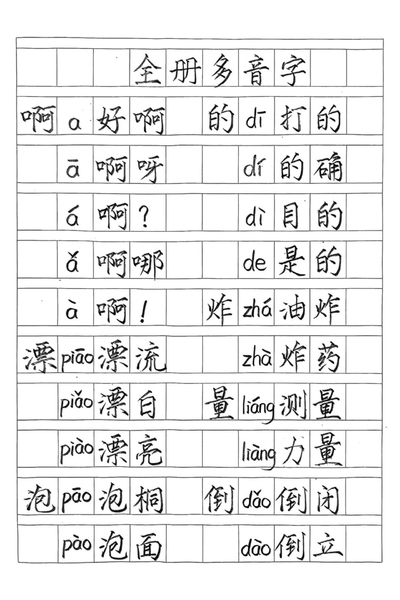 全册多音字
啊 a 好啊 的 dī 打的
ā 啊呀 dí 的确
á 啊？ dì 目的
ǎ 啊哪 de 是的
à 啊！ 炸 zhá 油炸
漂 piāo 漂流 zhà 炸药
piǎo 漂白 量 liáng 测量
piào 漂亮 liàng 力量
泡 pāo 泡桐 倒 dǎo 倒闭
pào 泡面 dào 倒立